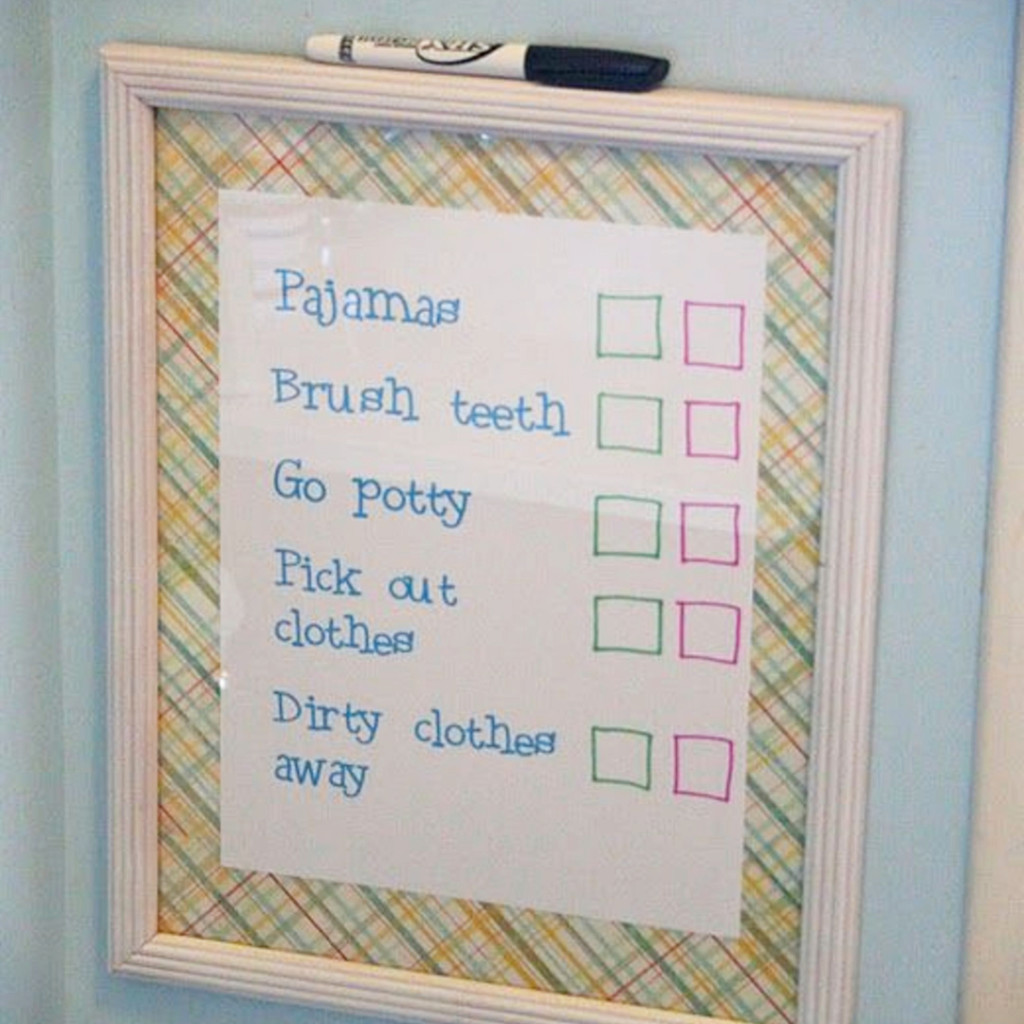 Pajamas
Brush teeth
Go potty
Pick out
clothes
Dirty clothes
away